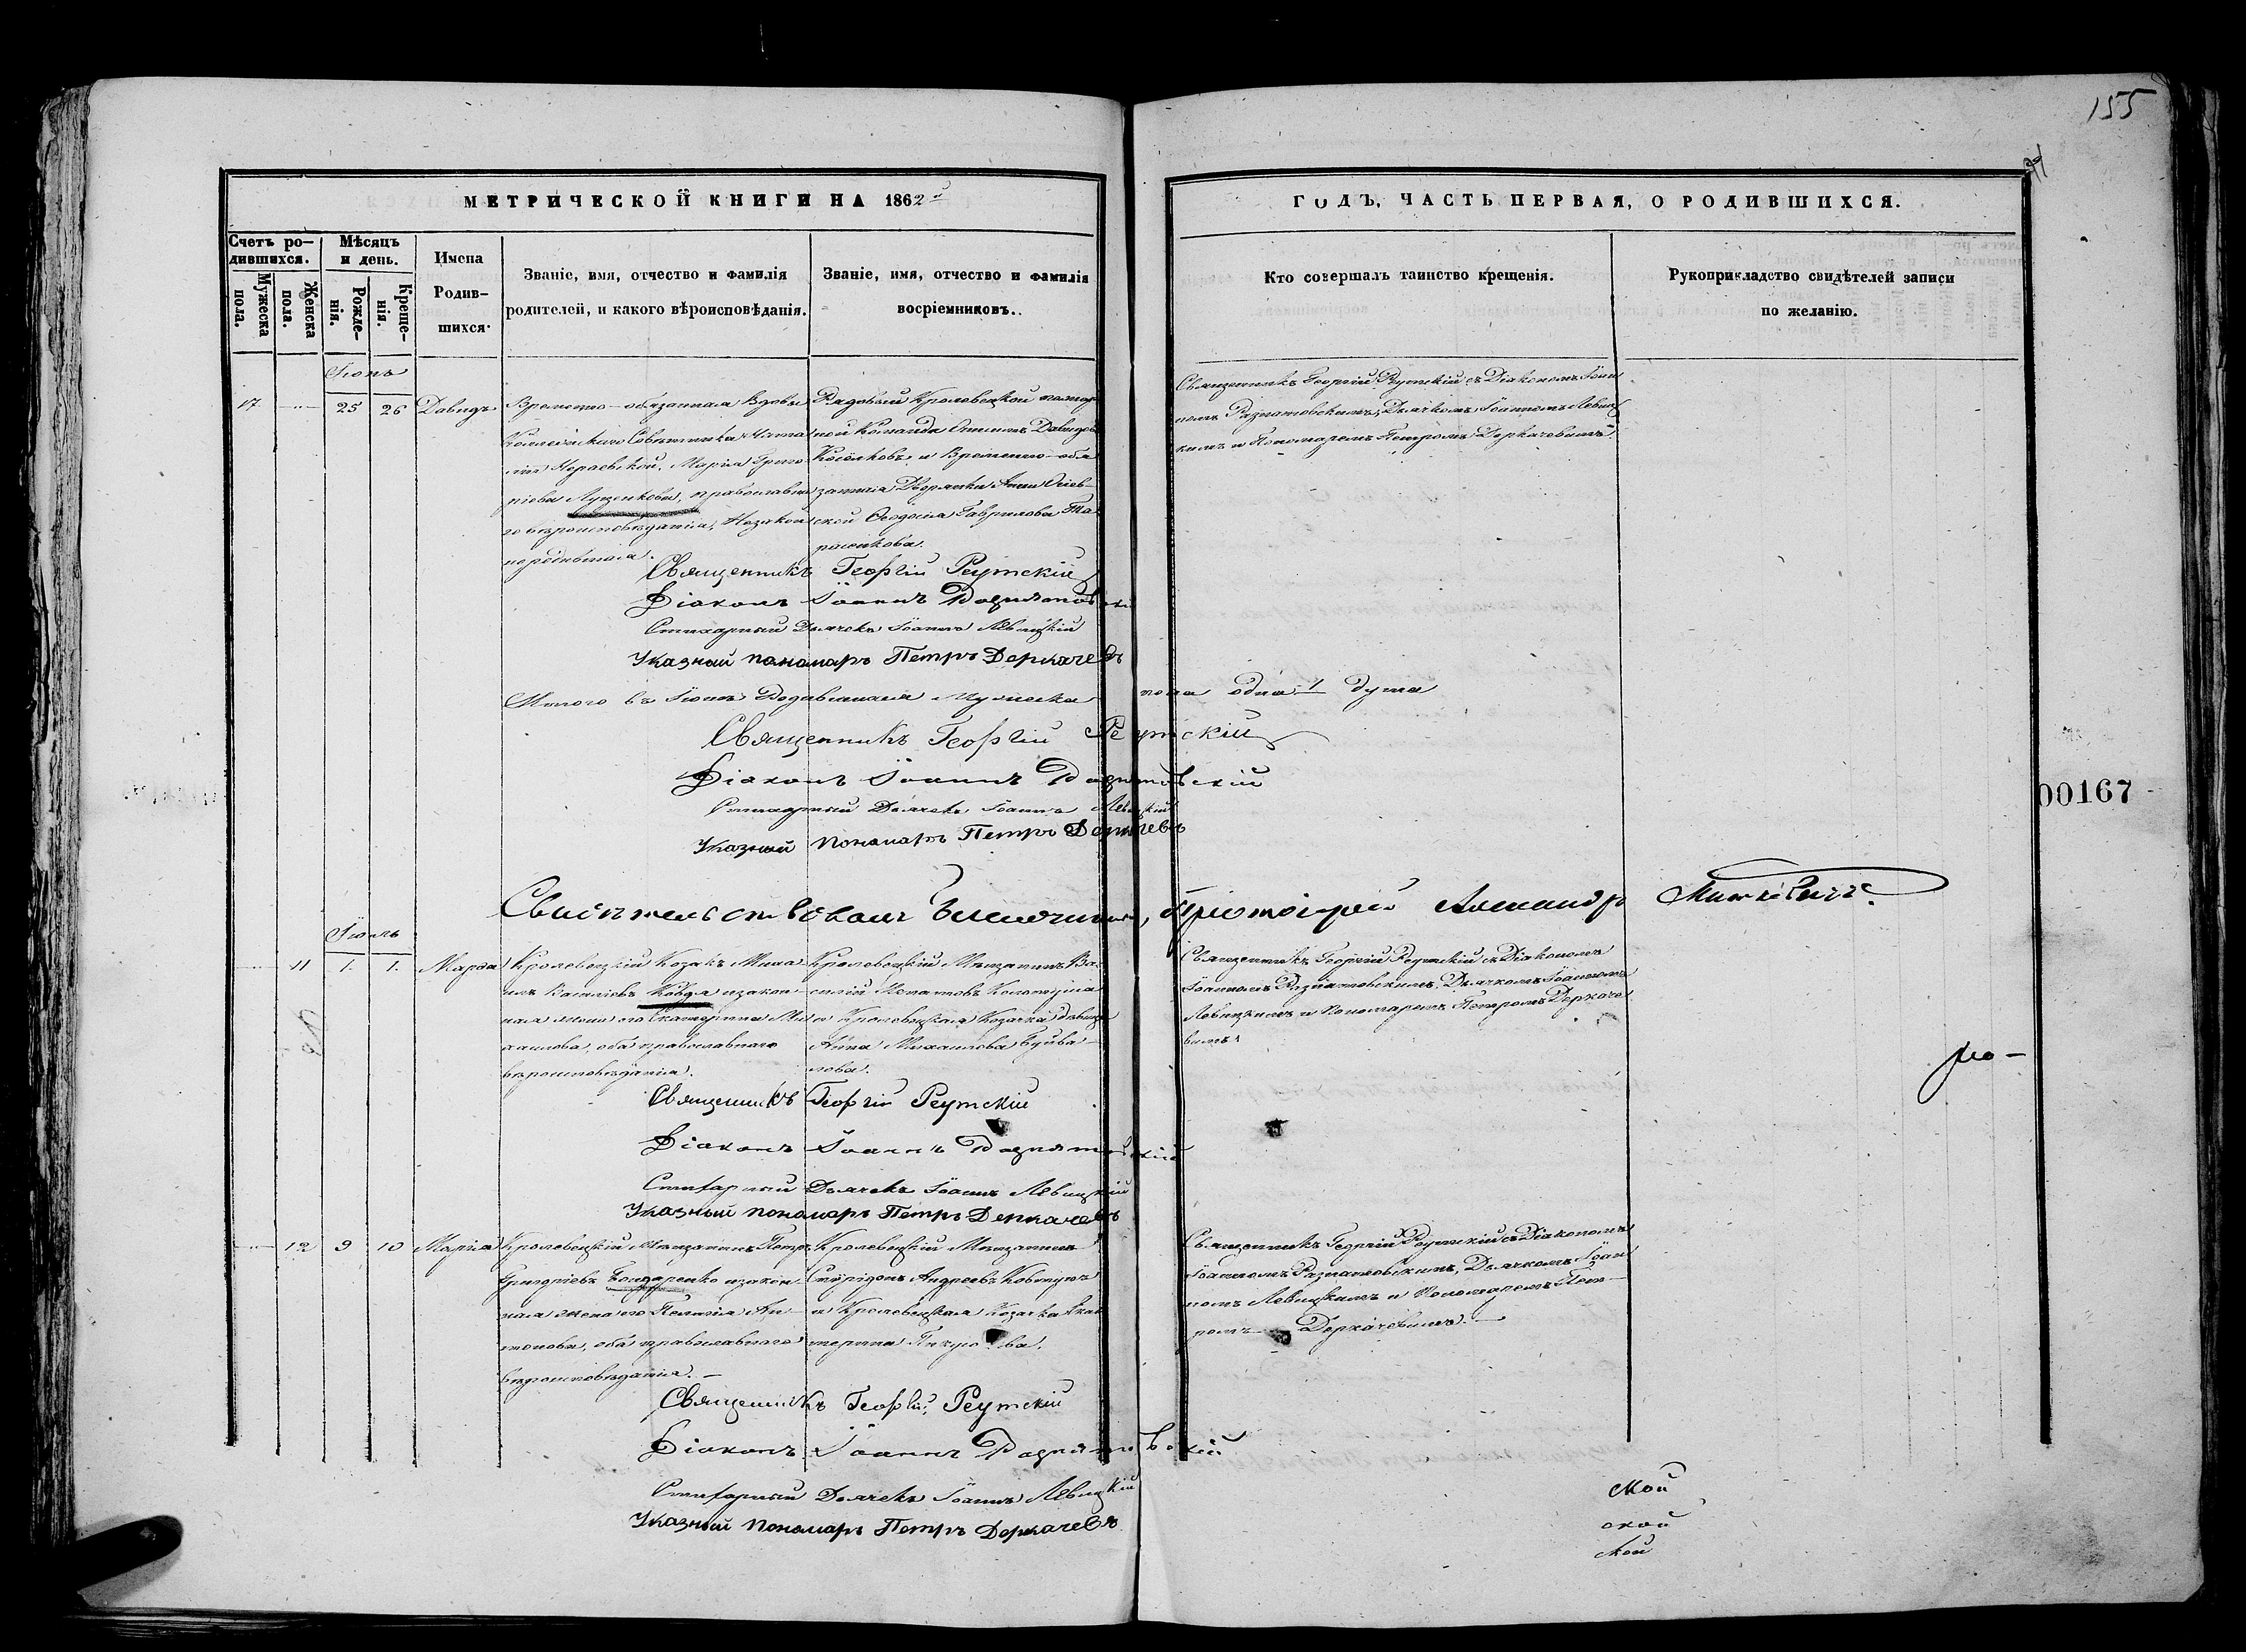 155
МЕТРИЧЕСКОЙ КНИГИ НА 1862й
ГОДЪ, ЧАСТЬ ПЕРВАЯ, О РОДИВШИХСЯ.
Счетъ ро-
дившихся.
Мужеска
пола.
Женска
пола.
Мѣсяцъ
и день.
Рожде-
нія.
Креще-
нія.
Имена
Родив-
шихся.
Званіе, имя, отчество и фамилія
родителей, и какого вѣроисповѣданія.
Званіе, имя, отчество и фамилія
воспріемниковъ.
Кто совершалъ таинство крещенія.
Рукоприкладство свидѣтелей записи
по желанію.
Іюнь
17 25 26 Давидъ
Временно-обязанная Вдовы
Коллежскаго Совѣтника
Марія Григо
ріева Луценкова, православна
го вѣроисповѣданія, Незакон
но
Рядовый Кролевецкой
ной Команды Давидовъ
и Временно-обя
занная Дворянки Анны
ской Ѳеодосія Гаврилова Та
расенкова.
Священникъ Георгій Реутскій съ Діакономъ Іоан
номъ Дьячкомъ Іоанномъ Левиц
кимъ и Пономаремъ Петромъ Деркачевимъ.
Священникъ Георгій Реутскій
Діаконъ Іоаннъ
Стихарный Дьячекъ Іоаннъ Левицкій
Указный пономарь Петръ Деркачевъ
Итого въ Іюнѣ Родившихся Мужеска пола одна 1 душа
Священникъ Георгій Реутскій
Діаконъ Іоаннъ
Стихарный Дьячекъ Іоаннъ Левицкій
Указный пономарь Петръ Деркачевъ
00167
Свидѣтельствовалъ Благочинный, Протоіерей Александръ
Іюль
11 1. 1. Марѳа
Кролевецкій Козакъ Миха
илъ Василіевъ Ковда и закон
ная жена его Екатерина Ми
хаилова, оба православнаго
вѣроисповѣданія.
Кролевецкій Мѣщанинъ Ва
силій
и Кролевецкая Козачка дѣвица
Анна Михаилова
нова.
Священникъ Георгій Реутскій съ Діакономъ
Іоанномъ Дьячкомъ Іоанномъ
Левицкимъ и Пономаремъ Петромъ Деркаче
вимъ.
Священникъ Георгій Реутскій
Діаконъ Іоаннъ
Стихарный Дьячекъ Іоаннъ Левицкій
Указный пономарь Петръ Деркачевъ
12 9 10 Марія
Кролевецкій Мѣщанинъ Петръ
Григоріевъ Бондаренко и закон
ная жена его Пелагія Ан
тонова, оба православнаго
вѣроисповѣданія.
Кролевецкій Мѣщанинъ
Спиридонъ Андреевъ
и Кролевецкая Козачка Ека
терина
Священникъ Георгій Реутскій съ Діакономъ
Іоанномъ Дьячкомъ Іоан
номъ Левицкимъ и Пономаремъ Пет
ромъ Деркачевимъ.
Священникъ Георгій Реутскій
Діаконъ Іоаннъ
Стихарный Дьячекъ Іоаннъ Левицкій
Указный пономарь Петръ Деркачевъ
ской
ской
ской